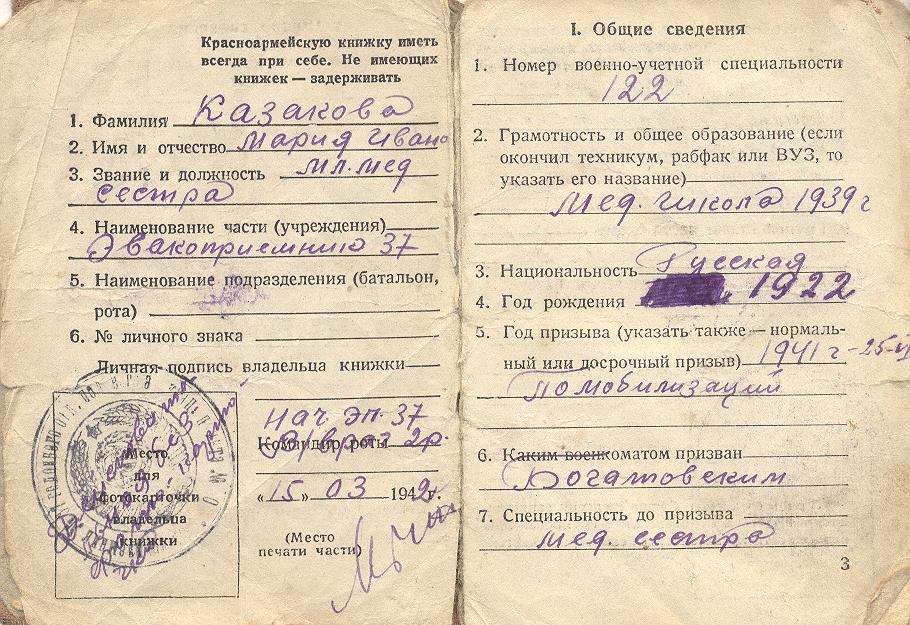 Красноармейскую книжку иметь
всегда при себе. Не имеющих
книжек — задерживать
1. Фамилия Казакова
2. Имя и отчество Мария Ивано
3. Звание и должность мл. мед
сестра
4. Наименование части (учреждения)
Эвакоприемник 37
5. Наименование подразделения (батальон,
рота)
6. № личного знака
Личная подпись владельца книжки
Нач. ЭП. 37
Командир роты
В/врач 2р.
Место
для
фотокарточки
владельца
книжки
Действительна
без
„15„ 03 1942г.
(Место
печати части)
I. Общие сведения
1. Номер военно-учетной специальности
122
2. Грамотность и общее образование (если
окончил техникум, рабфак или ВУЗ, то
указать его название)
Мед. школа 1939 г
3. Национальность Русская
4. Год рождения 1922
5. Год призыва (указать также — нормаль-
ный или досрочный призыв) 1941 г - 25-VI
По мобилизаций
6. Каким военкоматом призван
Богатовским
7. Специальность до призыва
мед. сестра
3